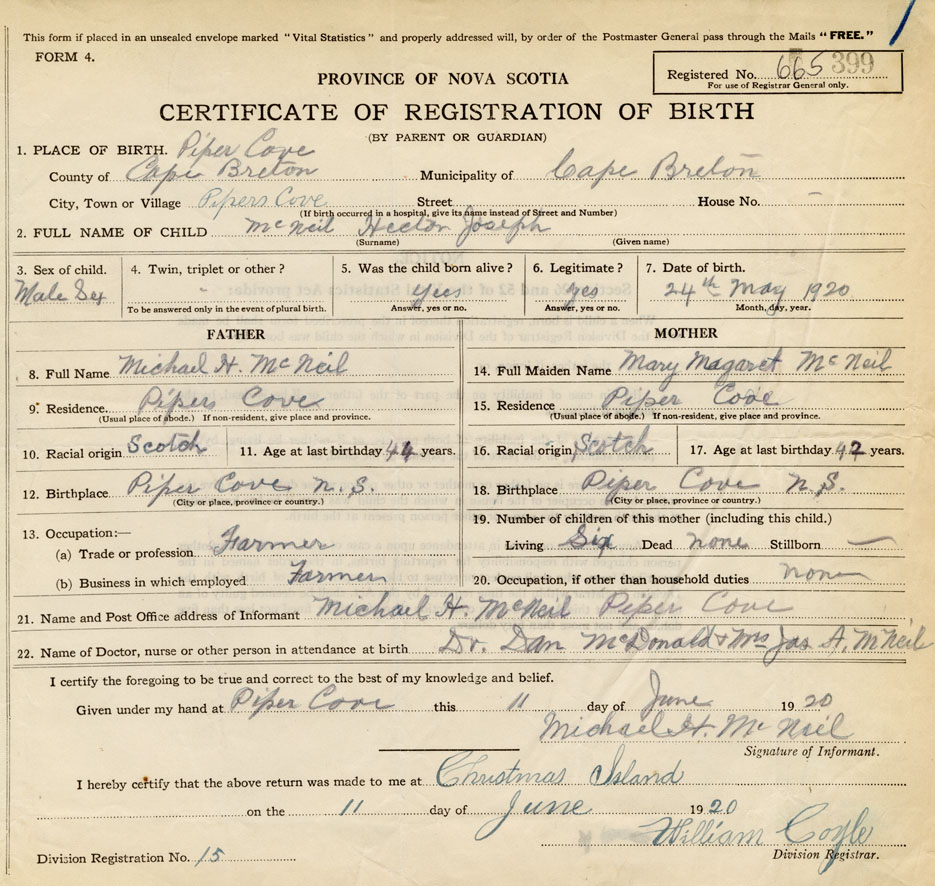 This form if placed in an unsealed envelope marked "Vital Statistics" and properly addressed will, by order of the Postmaster General pass through the Mails "FREE."
FORM 4.
Registered No. 665 399
For use of Registrar General only.
PROVINCE OF NOVA SCOTIA
CERTIFICATE OF REGISTRATION OF BIRTH
(BY PARENT OR GUARDIAN)
1. PLACE OF BIRTH. Piper Cove
County of Cape Breton Municipality of Cape Breton
City, Town or Village Pipers Cove Street House No. -
(If birth occurred in a hospital, give its name instead of Street and Number)
2. FULL NAME OF CHILD McNeil Hector Joseph
(Surname) (Given name)
3. Sex of child. 4. Twin, triplet or other? 5. Was the child born alive? 6. Legitimate? 7. Date of birth.
Male Sex - Yees yes 24th May 1920
To be answered only in the event of plural birth. Answer, yes or no. Answer, yes or no. Month, day, year.
FATHER MOTHER
8. Full Name Michael H. McNeil 14. Full Maiden Name Mary Magaret McNeil
9. Residence. Pipers Cove 15. Residence Piper Cove
(Usual place of abode.) If non-resident, give place and province. (Usual place of abode.) If non-resident, give place and province.
10. Racial origin Scotch 11. Age at last birthday 44 years. 16. Racial origin Scotch 17. Age at last birthday 42 years.
12. Birthplace Piper Cove N.S. 18. Birthplace Piper Cove N.S.
(City or place, province or country.) (City or place, province or country.)
13. Occupation:— 19. Number of children of this mother (including this child.)
(a) Trade or profession Farmer Living Six Dead none Stillborn —
(b) Business in which employed Farmer 20. Occupation, if other than household duties none
21. Name and Post Office address of Informant Michael H. McNeil Piper Cove
22. Name of Doctor, nurse or other person in attendance at birth Dr. Dan McDonald & Mrs Jas A. McNeil
I certify the foregoing to be true and correct to the best of my knowledge and belief.
Given under my hand at Piper Cove this 11 day of June 1920
Michael H. McNeil
Signature of Informant.
I hereby certify that the above return was made to me at Christmas Island
on the 11 day of June 1920
William Coyle
Division Registration No. 15 Division Registrar.